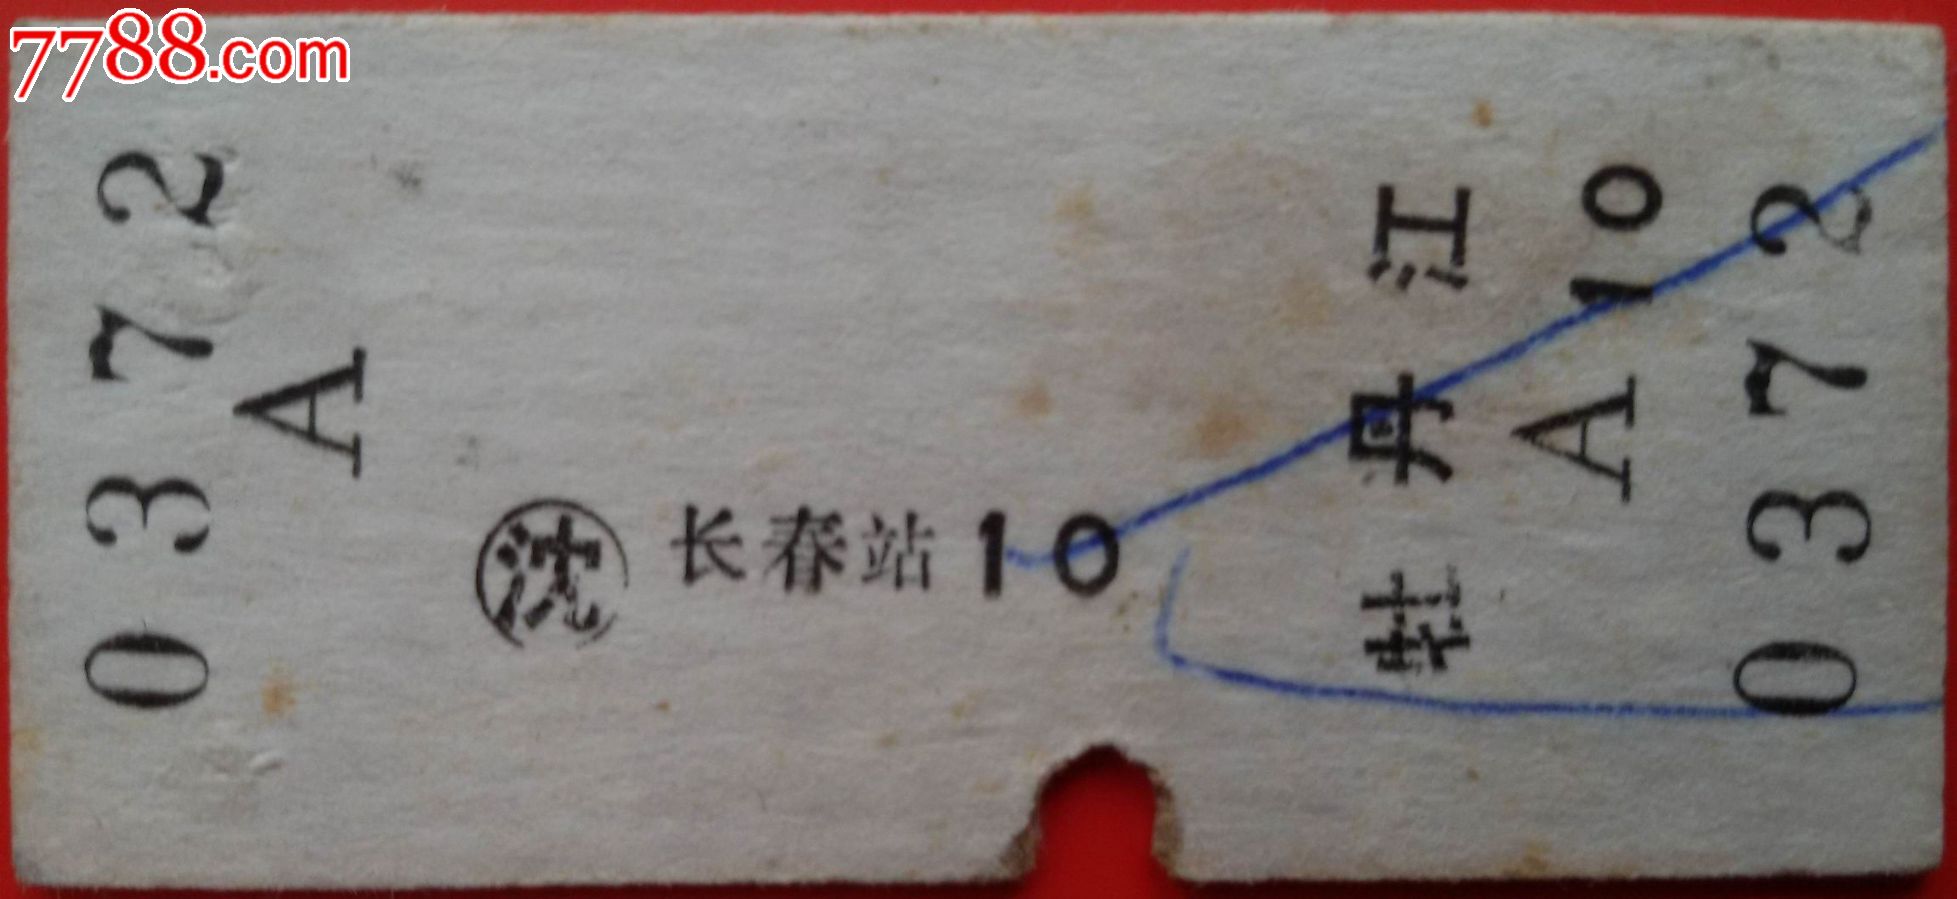 7788.com
0372
A
沈
长春站 10
牡丹江
A 10
0372